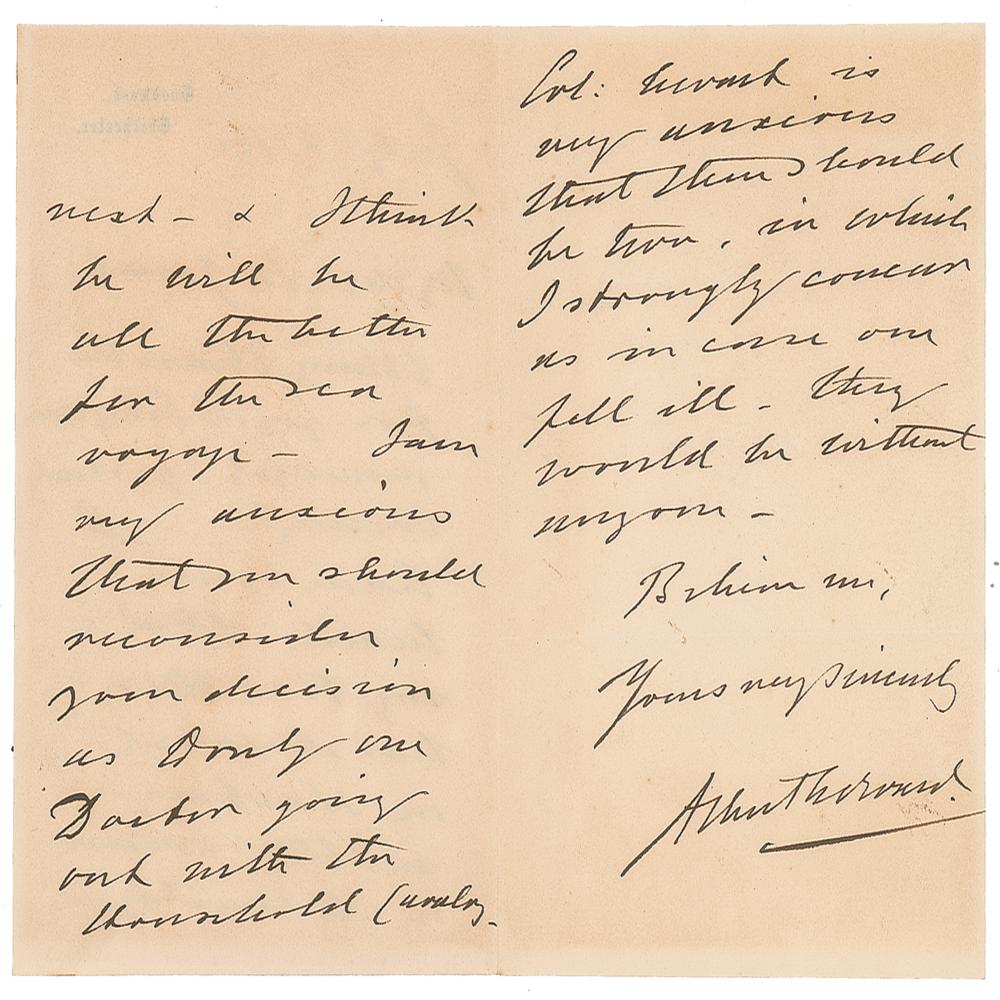 Goodwood,
Chichester.
rest – & I think
he will be
all the better
for the sea
voyage – I am
very anxious
that you should
reconsider
your decision
as to only one
Doctor going
out with the
Household Cavalry.
Col: Ewart is
very anxious
that there should
be two, in which
I strongly concur
as in case one
fell ill – they
would be without
anyone –
Believe me,
Yours very sincerely
Albert Edward.